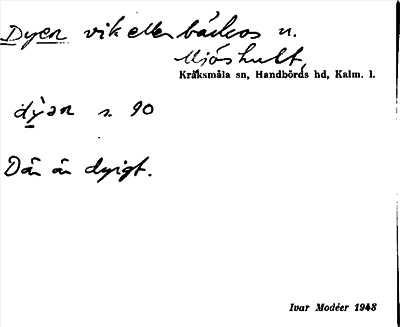 Dyen vik eller bäckos n.
Mjöshult,
Kråksmåla sn, Handbörds hd, Kalm. l.
dỳən s. 90
Där är dyigt.
Ivar Modéer 1943